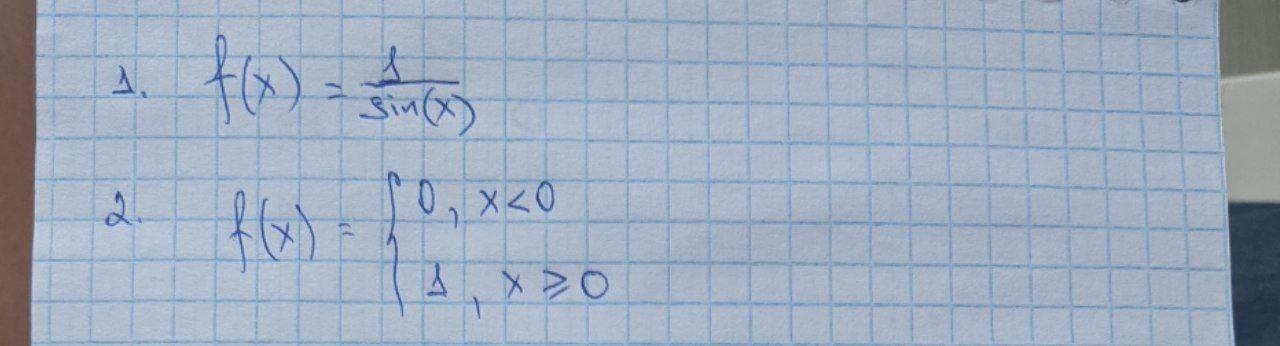 1. f(x) = 1/sin(x)
2. f(x) = { 0, x<0
1, x ⩾ 0